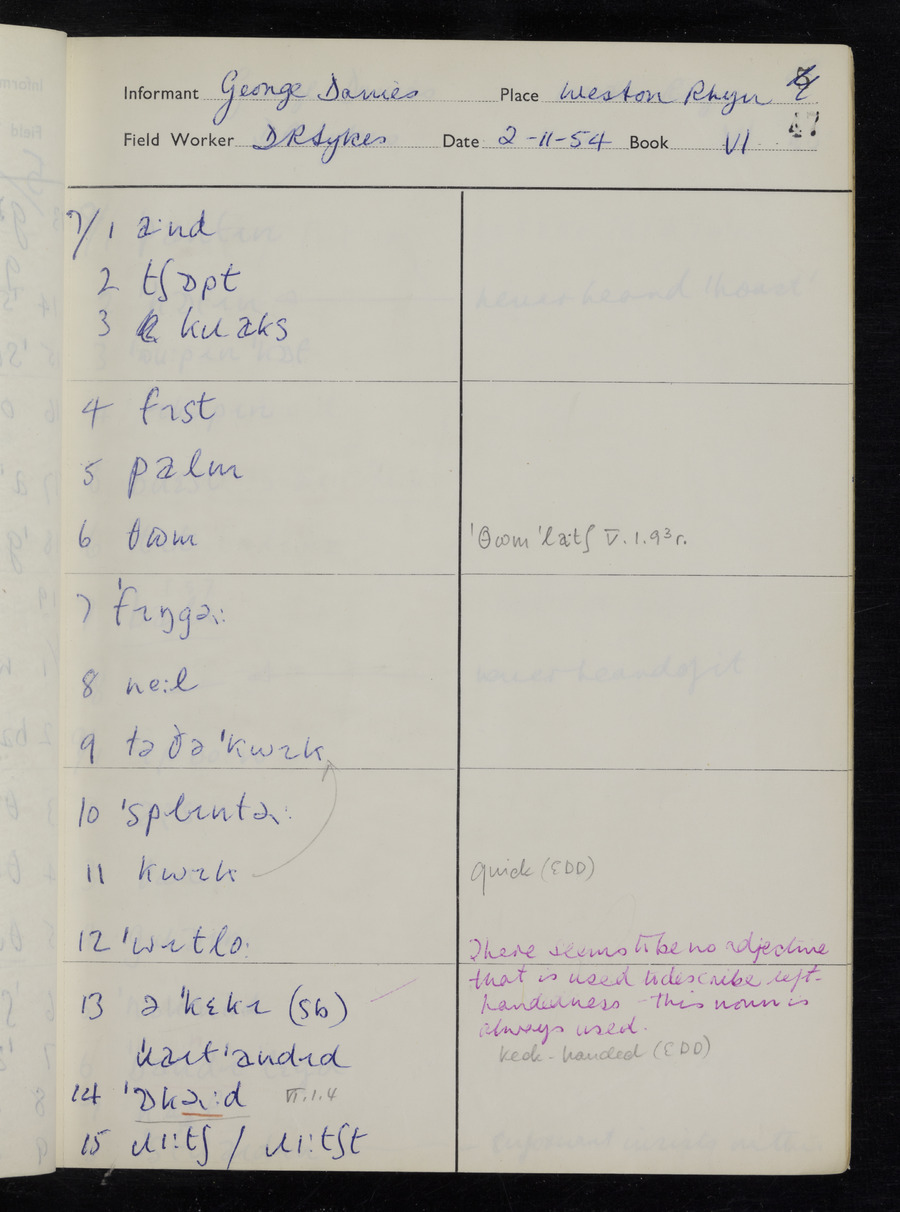 Informant George Davies Place Weston Rhyn
47
Field Worker DRSykes Date 2-11-54 Book VI
7/1 a:nd
2 tʃɒpt
3 kɹaks
4 fɪst
5 palm
6 θωm 'θωm 'latʃ V.1.9³r.
7 'fɪŋgəɹ:
8 ne:l
9 tə ðə 'kwɪk
10 'splɪntəɹ:
11 kwɪk quick (EDD)
12 'wɪtlo: There seems to be no adjective
that is used to describe left-
13 ə 'kɛkɪ (sb) handedness - this noun is
always used.
keck-handed (EDD)
14 'ɒkəɹ:d VI.1.4
15 ɹi:tʃ / ɹi:tʃt